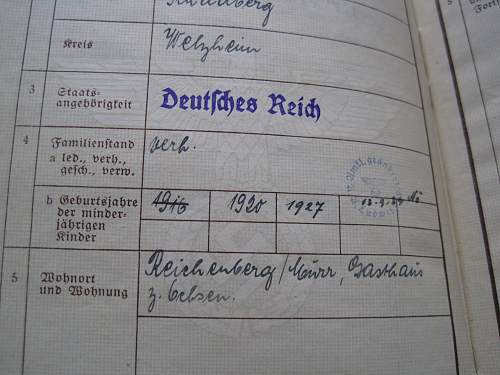 Kreis
Welzheim
3 Staats-
angehörigkeit
Deutsches Reich
4 Familienstand
a led., verh.,
gesch., verw.
verh.
b Geburtsjahre
der minder-
jährigen
Kinder
1916 1920 1927
5 Wohnort
und Wohnung
Reichenberg/Murr, Gasthaus
z. Ochsen.